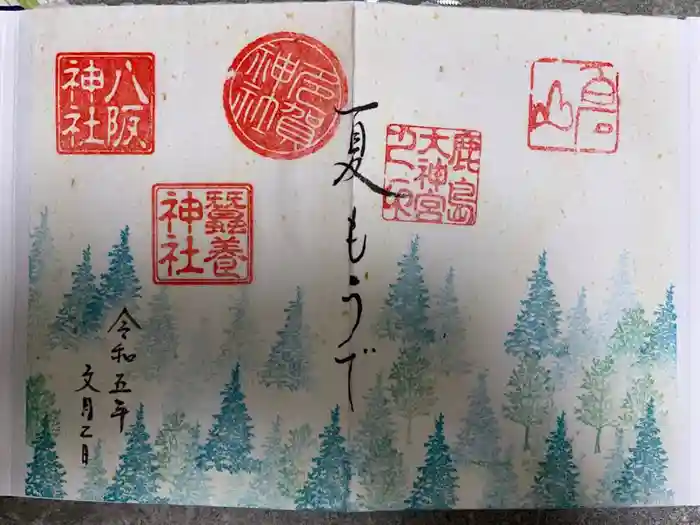 鹿島
大神宮
之印
夏もうで
多賀
神社
八阪
神社
蠶養
神社
令和五年
文月二日